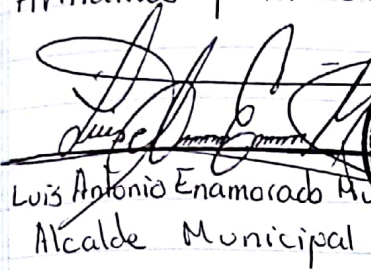 Luis Antonio Enamorado Mu
Alcalde Municipal